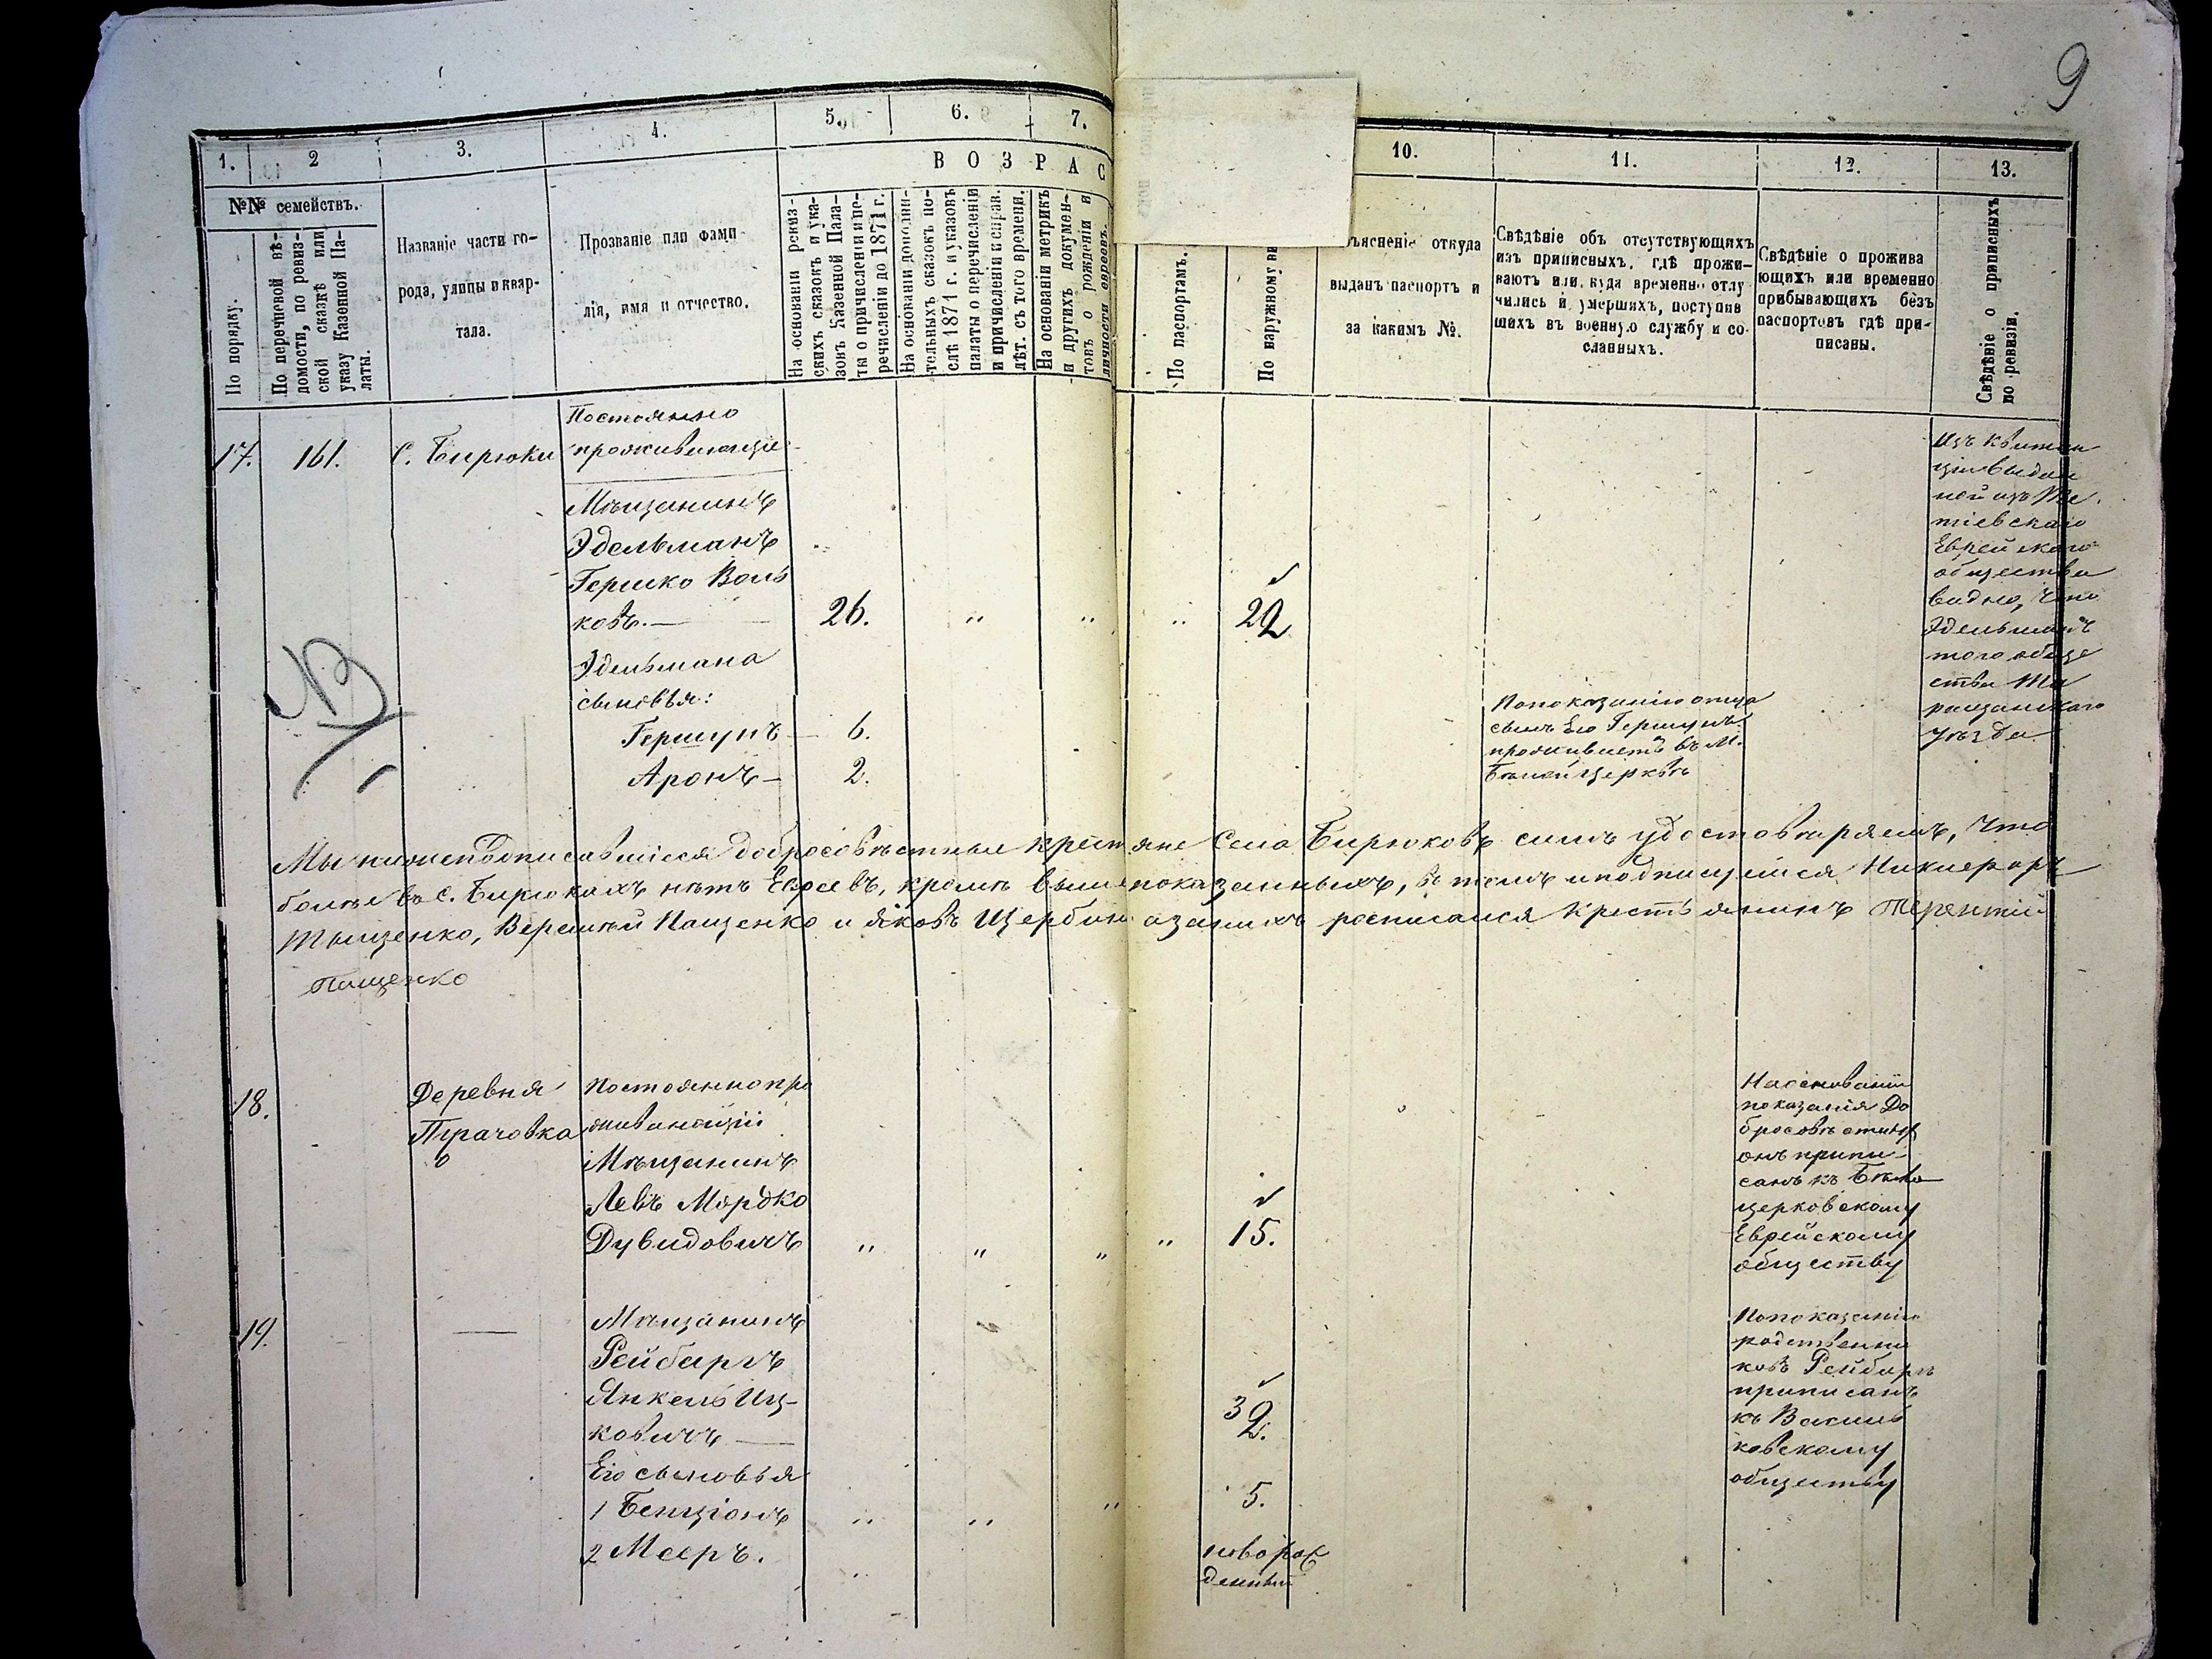 9
1.
2
3.
4.
5.
6.
7.
10.
11.
12.
13.
ВОЗРАС
№№ семействъ.
По порядку.
По перечневой вѣ-
домости, по ревиз-
ской сказкѣ или
указу Казенной Па-
латы.
Названіе части го-
рода, улицы и квар-
тала.
Прозваніе или фами-
лія, имя и отчество.
На основаніи ревиз-
скихъ сказокъ и ука-
зовъ Казенной Пала-
ты о причисленіи и пе-
речисленіи до 1871 г.
На основаніи дополни-
тельныхъ сказокъ по-
слѣ 1871 г. и указовъ
палаты о перечисленіи
и причисленіи и справ.
лѣт. съ того времени.
На основаніи метрикъ
и другихъ докумен-
товъ о рожденіи и
личности евреевъ.
По паспортамъ.
По наружному ви
ъясненіе откуда
выданъ паспортъ и
за какимъ №.
Свѣдѣніе объ отсутствующихъ
изъ приписныхъ, гдѣ прожи-
ваютъ или куда временно отлу
чились и умершихъ, поступив
шихъ въ военную службу и со-
сланныхъ.
Свѣдѣніе о прожива
ющихъ или временно
прибывающихъ безъ
паспортовъ гдѣ при-
писаны.
Свѣдѣніе о приписныхъ
по ревизіи.
17.
161.
С. Бирюки
Постоянно
проживающіе
Мѣщанинъ
Эдельманъ
Гершко Воль
ковъ.
26.
22
Эдельмана
сыновья:
Гершунъ — 6.
Аронъ — 2.
По показанію отца
сынъ Его Гершунъ
проживаетъ въ М.
Бѣлой Церквѣ
Изъ квитан
ціи выдан
ной изъ Те
тіевскаго
Еврейскаго
общества
видно, что
Эдельманъ
того обще
ства Та
ращанскаго
уѣзда
Мы нижеподписавшіеся добросовѣстные крестьяне Села Бирюковъ симъ удостовѣряемъ, что
болѣе въ с. Бирюкахъ нѣтъ Евреевъ, кромѣ вышепоказанныхъ, въ томъ и подпишемся Никиеоръ
Тыщенко, Пащенко и Яковъ Щербин а за нихъ росписался Крестьянинъ Терентій
Пащенко
18.
Деревня
Пугачовка
Постоянно про
живающіи
Мѣщанинъ
Левъ Мордко
Дувидовичъ
15.
На основаніи
показанія До
бросовѣстныхъ
онъ припи-
санъ къ Бѣло
церковскому
Еврейскому
обществу
19.
Мѣщанинъ
Рейбаргъ
Янкель Иц-
ковичъ
32.
Его сыновья
1 Бенціонъ
5.
2 Мееръ.
новорож
денный
По показанію
родственни
ковъ Рейбаргъ
приписанъ
къ Василь
ковскому
обществу